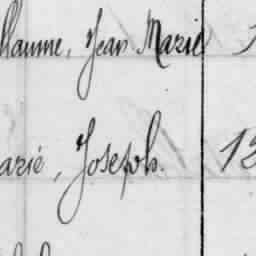 llaume, Jean Marie
arié, Joseph. 13